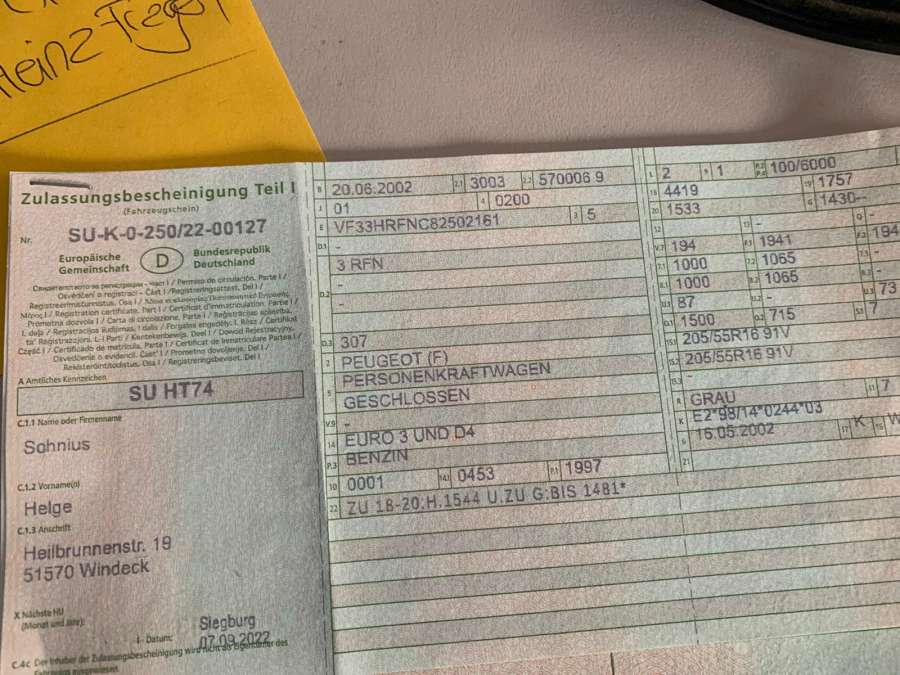 Heinz
Zulassungsbescheinigung Teil I
(Fahrzeugschein)
Nr. SU-K-0-250/22-00127
Europäische Gemeinschaft
D
Bundesrepublik Deutschland
A Amtliches Kennzeichen
SU HT74
C.1.1 Name oder Firmenname
Sohnius
C.1.2 Vorname(n)
Helge
C.1.3 Anschrift
Heilbrunnenstr. 19
51570 Windeck
X Nächste HU
(Monat und Jahr):
Siegburg
I - Datum: 07.09.2022
C.4c Der Inhaber der Zulassungsbescheinigung wird nicht als Eigentümer des
Fahrzeugs ausgewiesen.
B 20.06.2002 2.1 3003 2.2 570006 9
J 01 4 0200
E VF33HRFNC82502161 3 5
D.1 -
3 RFN
D.2 -
-
D.3 307
2 PEUGEOT (F)
5 PERSONENKRAFTWAGEN
GESCHLOSSEN
V.9 -
14 EURO 3 UND D4
P.3 BENZIN
10 0001 14.1 0453 P.1 1997
22 ZU 18-20:H.1544 U.ZU G:BIS 1481*
L 2 9 1 P.2 P.4 100/6000
18 4419 19 1757
20 1533 G 1430--
12 - 13 - Q -
V.7 194 F.1 1941 F.2 194
7.1 1000 7.2 1065 7.3 -
8.1 1000 8.2 1065 8.3 -
U.1 87 U.2 - U.3 73
O.1 1500 O.2 715 S.1 7
15.1 205/55R16 91V
15.2 205/55R16 91V
15.3 -
R GRAU 11 7
K E2*98/14*0244*03
6 15.05.2002 17 K 16 W
21